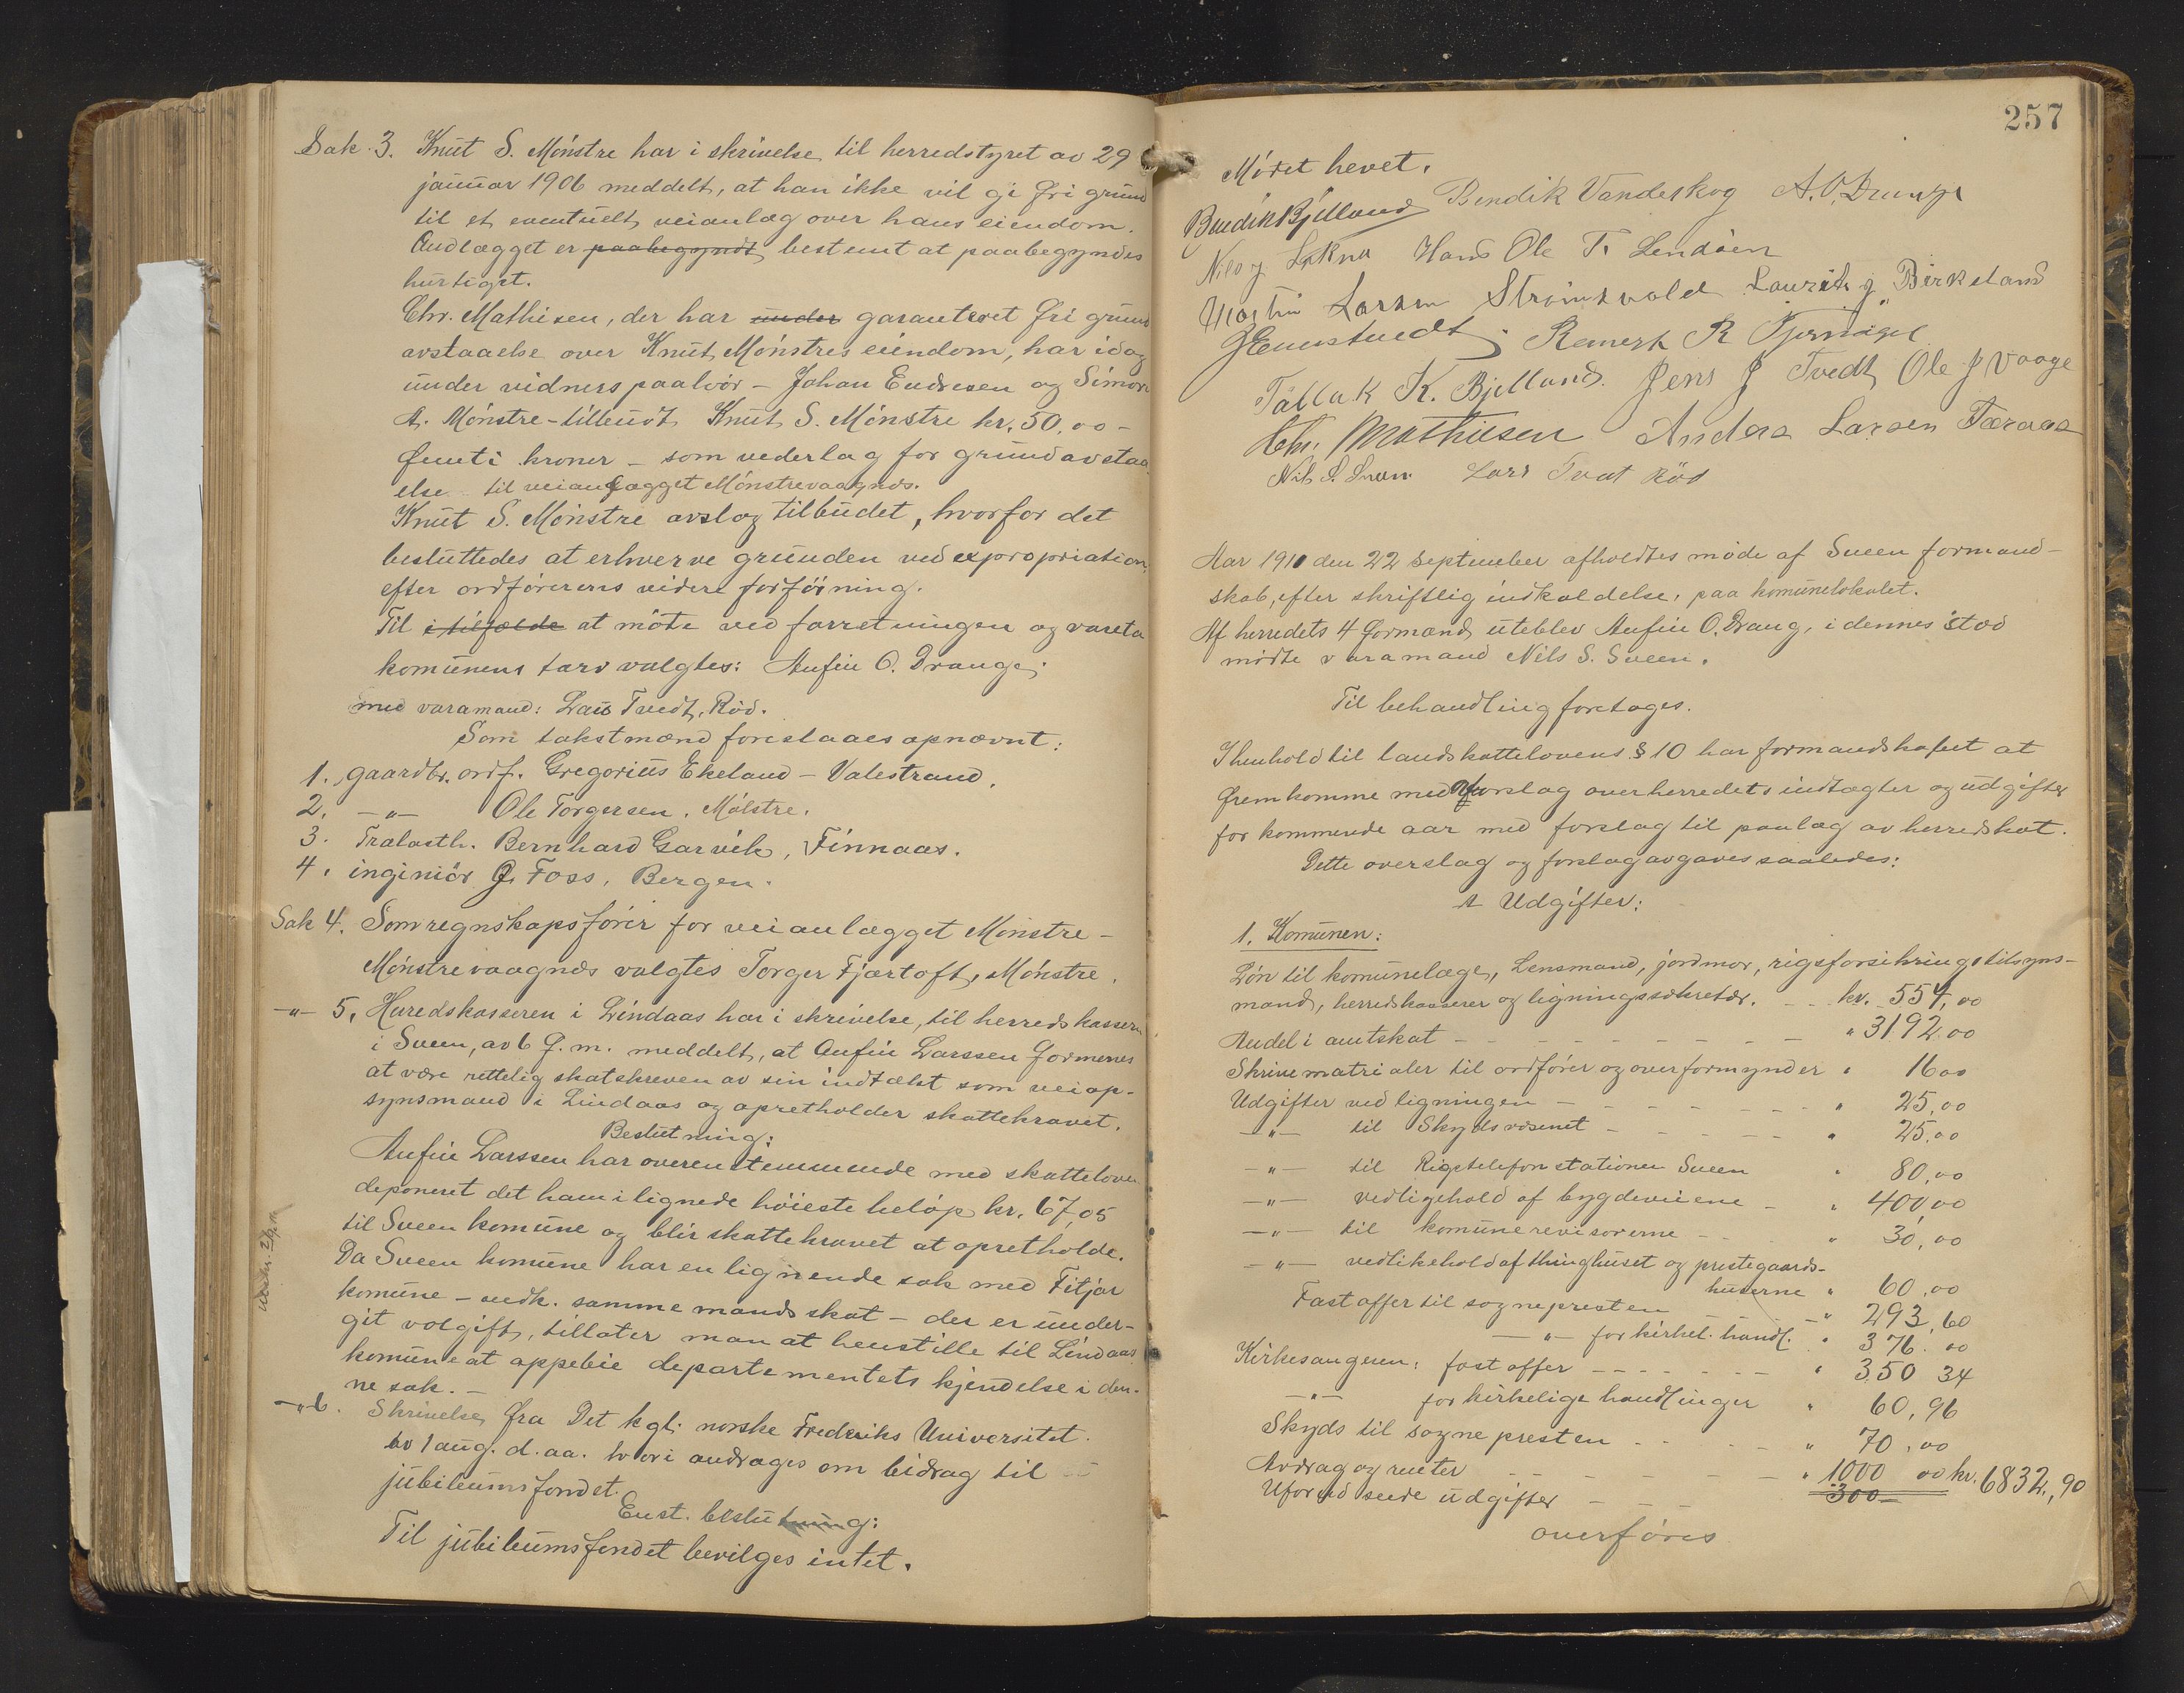 Sak 3. Knut S. Mónstre har i skrivelse til herredstyret av 29
januar 1906 meddelt, at han ikke vil gi fri grund
til et eventuelt veianlæg over hans eiendom.
Anlægget er paabegyndt bestemt at paabegyndes
hurtigst.
Chr. Mathisen, der har under garanteret fri grund
avstaaelse over Knut Mónstres eiendom, har idag
under vidners paahör – Johan Endresen og Simon
A. Mónstre – tilbudt Knut S. Mónstre kr. 50,00 –
femti kroner – som vederlag for grundavstaa
else til veianlægget Mónstrevaagnes.
Knut S. Mónstre avslog tilbudet, hvorfor det
besluttedes at erhverve grunden ved expropriation,
efter ordförerens videre forföining.
Til i tilfælde at möte ved forretningen og vareta
komunens tarv valgtes: Anfin O. Drange,
med varamand: Lars Tvedt, Röd.
Som takstmænd foreslaaes opnævnt:
1. gaardbr. ordf. Gregorius Ekeland – Valestrand.
2. –"– Ole Torgersen, Mölstre.
3. Tralasth. Bernhard Garvik, Finnaas.
4. ingeniör J. Foss, Bergen.
Sak 4. Som regnskapsförer for veianlægget Mónstre –
Mónstrevaagnes valgtes Torger Fjærtoft, Mónstre.
–"– 5. Heredskasseren i Lindaas har i skrivelse, til herredskasseren
i Sveen, av 6 f.m. meddelt, at Anfin Larssen formenes
at være rettelig skatskreven av sin indtækt som veiop-
synsmand i Lindaas og opretholder skattekravet.
Beslutning:
Anfin Larssen har overenstemmende med skatteloven
deponeret det ham ilignede höieste belöp kr. 67,05
til Sveen komune og blir skattekravet at opretholde.
Da Sveen komune har en lignende sak med Fitjar
komune – vedk. samme mands skat – der er under-
git volgift, tillater man at henstille til Lindaas
komune at appebie departementets kjendelse i den-
ne sak. –
–"– 6. Skrivelse fra Det kgl. norske Frederiks Universitet
av 1 aug. d. aa. hvori andrages om bidrag til
jubileumsfondet.
Enst. beslutning:
Til jubileumsfondet bevilges intet.
257
Mötet hevet.
Bendik Bjelland Bendik Vandeskog A. O. Drange
Nils J. Løkna Hans Ole T. Lendåen
Martin Larsen Strömsvold Lauritz J. Birkeland
Remerk R Tjernagel
Tallak K. Bjelland. Jens J Tvedt Ole J Vaage
Chr. Mathiesen Anders Larsen Færaas
Nils S. Sveen Lars Tvedt Röd
Aar 1910 den 22 september afholdtes möde af Sveen formand-
skab, efter skriftlig indkaldelse, paa komunelokalet.
Af herredets 4 formænd uteblev Anfin O. Drang, i dennes sted
mödte varamand Nils S. Sveen.
Til behandling foretoges.
I henhold til landskattelovens § 10 har formandskabet at
fremkomme med forslag over herredets indtægter og udgifter
for kommende aar med forslag til paalæg av herredskat.
Dette overslag og forslag avgaves saaledes:
A Udgifter:
1. Komunen:
Lön til komunelæge, Lensmand, jordmor, rigsforsikringstilsyns-
mand, herredskasserer og ligningssekretær. – – kr. 554,00
Andel i amtskat – – – " 3192.00
Skrivematrialer til ordförer og overformynder " 16 00
Udgifter ved ligningen – – – " 25,00
–"– til Skydsvæsenet – – – " 25,00
–"– til Rigstelefonstationen Sveen " 80,00
–"– vedligehold af bygdeveiene – " 400,00
–"– til komunerevisorerne – – " 30,00
–"– vedlikehold af thinghuset og prestegaards-
huserne " 60,00
Fast offer til sognepresten –"– 293,60
–"– for kirkel. handl. " 376.00
Kirkesangeren: fast offer – – – " 350 34
–"– for kirkelige handlinger " 60,96
Skyds til sognepresten – – – " 70,00
Avdrag og renter – – – " 1000 00 kr. 6832,90
Uforudseede udgifter – – – 300 –
overföres